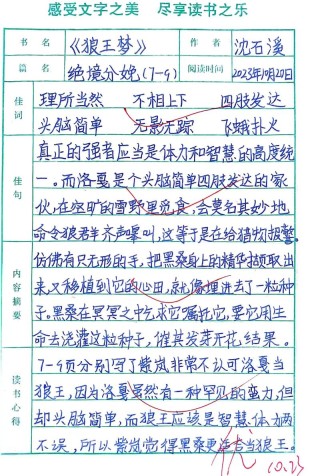 感受文字之美 尽享读书之乐
书名 《狼王梦》 作者 沈石溪
篇名 绝境分娩(7-9) 阅读时间 2023年10月20日
佳词 理所当然 不相上下 四肢发达
头脑简单 无影无踪 飞蛾扑火
佳句 真正的强者应当是体力和智慧的高度统
一。而洛戛是个头脑简单四肢发达的家
伙,在空旷的雪野里觅食,会莫名其妙地
命令狼群齐声嗥叫,这等于是在给猎物报警
内容摘要 仿佛有只无形的手,把黑桑身上的精华摄取出
来又移植到它的心田,就像埋进去了一粒种
子。黑桑在冥冥之中乞求它嘱托它,要它用生
命去浇灌这粒种子,催其发芽开花,结果。
读书心得 7-9页分别写了紫岚非常不认可洛戛当
狼王,因为洛戛虽然有一种罕见的蛮力,但
却头脑简单,而狼王应该是智慧体力两
不误,所以紫岚觉得黑桑更适合当狼王。
优 10.23